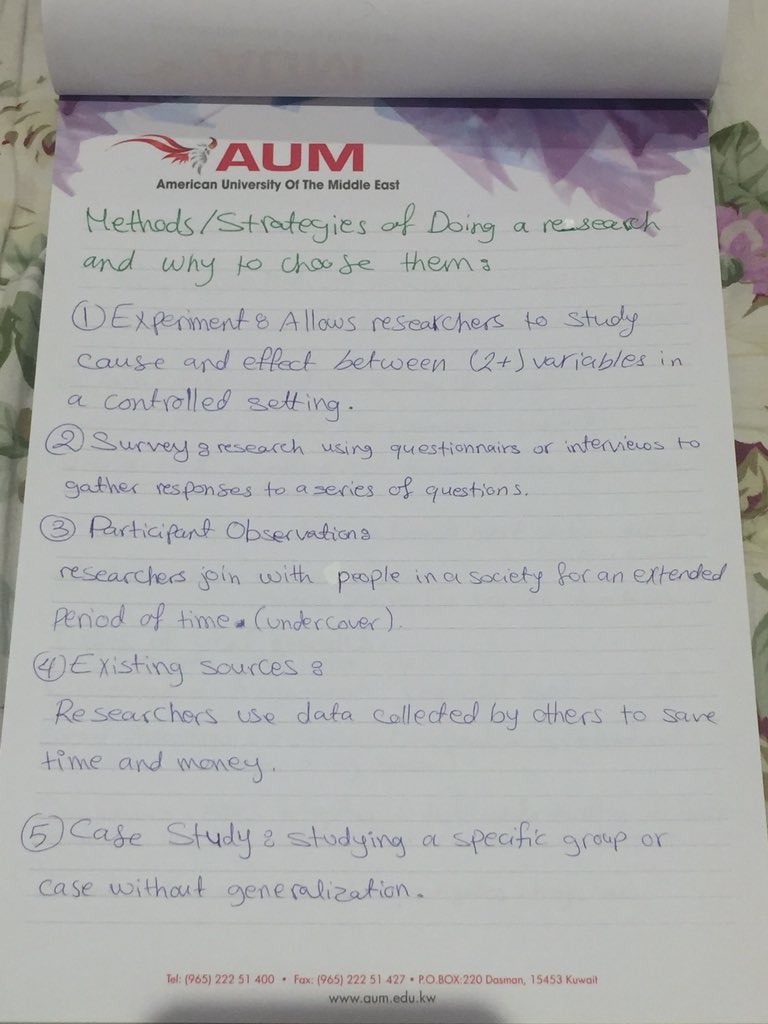 AUM
American University Of The Middle East
Methods/Strategies of Doing a research
and why to choose them:
① Experiment: Allows researchers to study
cause and effect between (2+) variables in
a controlled setting.
② Survey: research using questionnairs or interviews to
gather responses to a series of questions.
③ Participant Observation:
researchers join with people in a society for an extended
period of time. (undercover).
④ Existing sources:
Researchers use data collected by others to save
time and money.
⑤ Case Study: studying a specific group or
case without generalization.
Tel: (965) 222 51 400 • Fax: (965) 222 51 427 • P.O.BOX:220 Dasman, 15453 Kuwait
www.aum.edu.kw